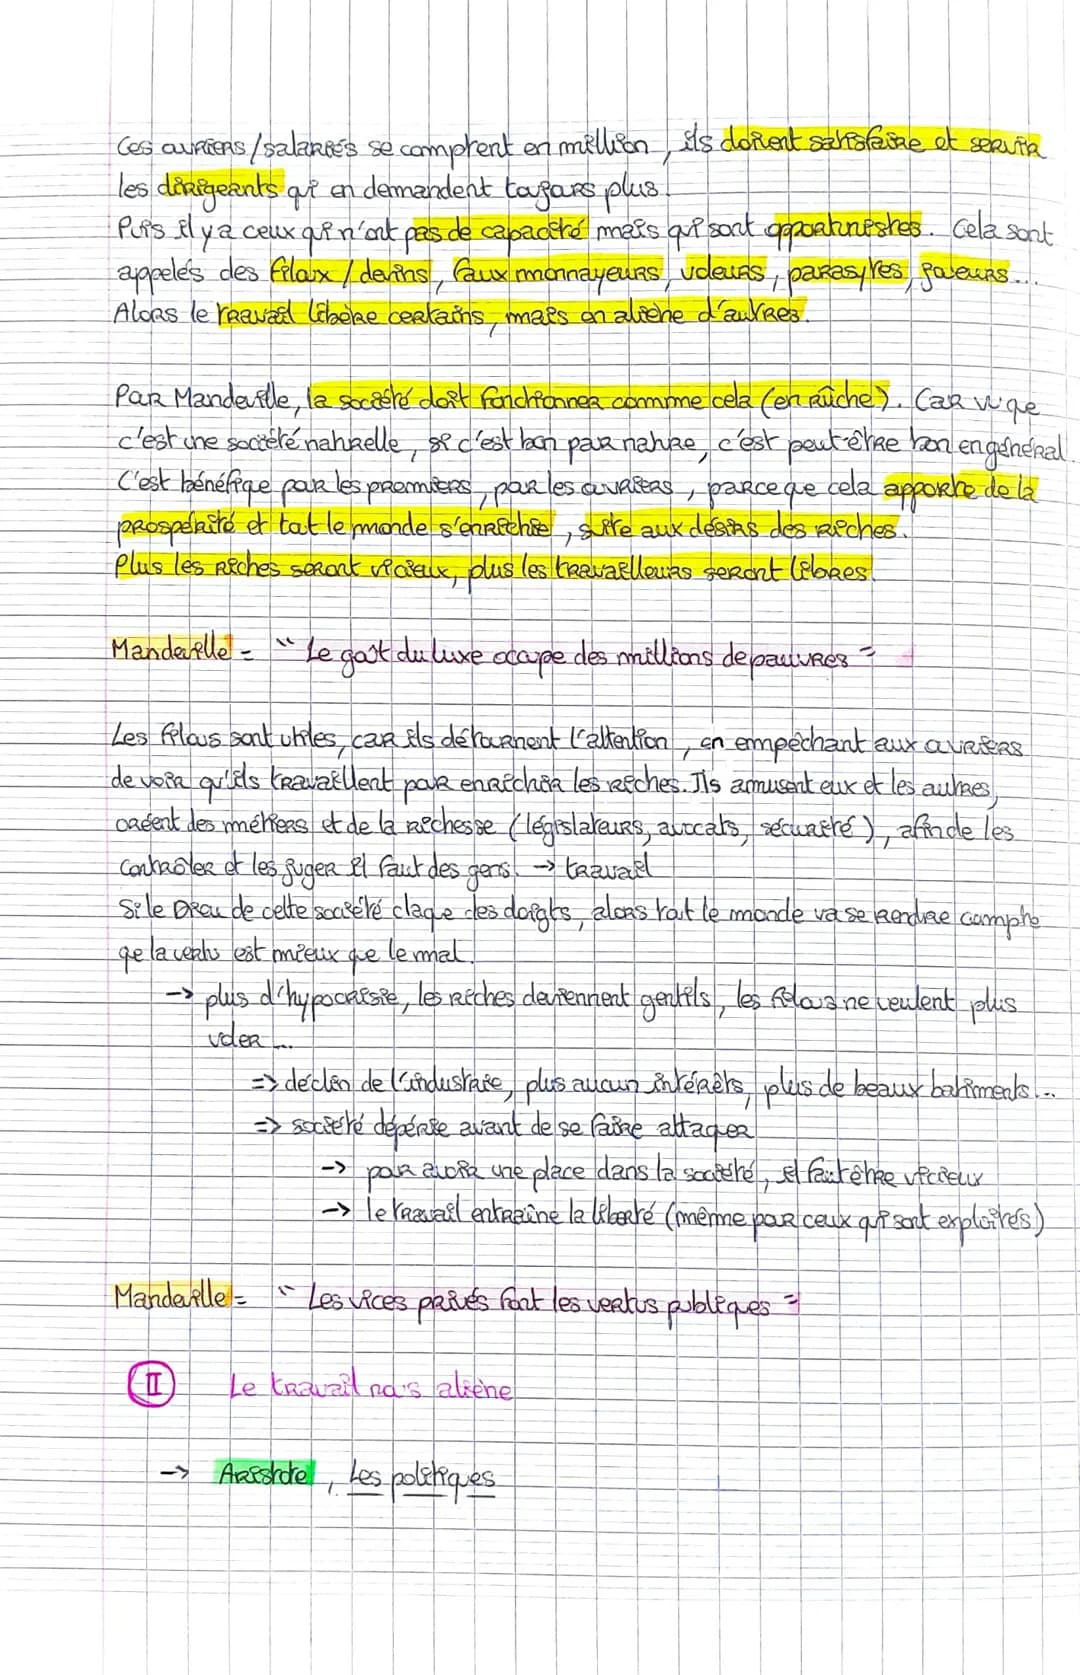 Ces ouvriers/salariés se comptent en million, ils doivent satisfaire et servir
les dirigeants qui en demandent toujours plus.
Puis il y a ceux qui n'ont pas de capacité mais qui sont opportunistes. Cela sont
appelés des filoux / devins, faux monnayeurs, voleurs, parasytes, joueurs...
Alors le travail libère certains, mais en aliène d'autres.
Pour Mandeville, la société doit fonctionner commme cela (en rûche). Car vu que
c'est une société naturelle, si c'est bon par nature, c'est peut-être bon en général.
C'est bénéfique pour les premiers, pour les ouvriers, parce que cela apporte de la
prospérité et tout le monde s'enrichie, suite aux désirs des riches.
Plus les riches seront vicieux, plus les travailleurs seront libres.
Mandeville = " Le goût du luxe occupe des millions de pauvres "
Les filous sont utiles, car ils détournent l'attention, en empêchant aux ouvriers
de voir qu'ils travaillent pour enrichir les riches. Ils amusent eux et les autres,
créent des métiers et de la richesse (législateurs, avocats, sécurité), afin de les
contrôler et les juger il faut des gens. → travail
Si le Dieu de cette société claque des doigts, alors tout le monde va se rendre compte
que la vertu est mieux que le mal.
→ plus d'hypocrisie, les riches deviennent gentils, les filous ne veulent plus
voler ...
=> déclin de l'industrie, plus aucun intérêts, plus de beaux batiments...
=> société dépérie avant de se faire attaquer
→ pour avoir une place dans la société, il faut être vicieux
→ le travail entraîne la liberté (même pour ceux qui sont exploités)
Mandeville = " Les vices privés font les vertus publiques "
II Le travail nous aliène
→ Aristote, Les politiques